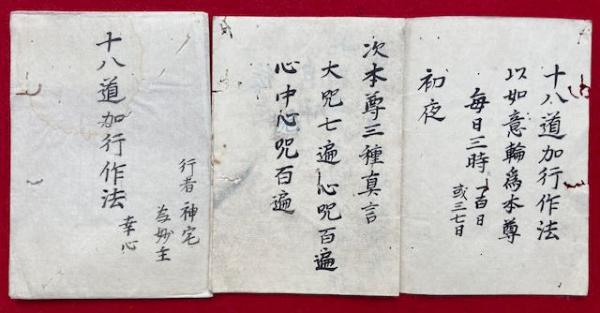 十八道加行作法
以如意輪爲本尊
每日三時 一百日
或三七日
初夜
次本尊三種真言
大咒七遍心咒百遍
心中心咒百遍
行者 神宅
妙主
幸心
十八道加行作法